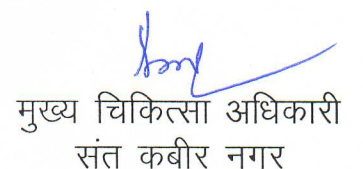 मुख्य चिकित्सा अधिकारी
संत कबीर नगर